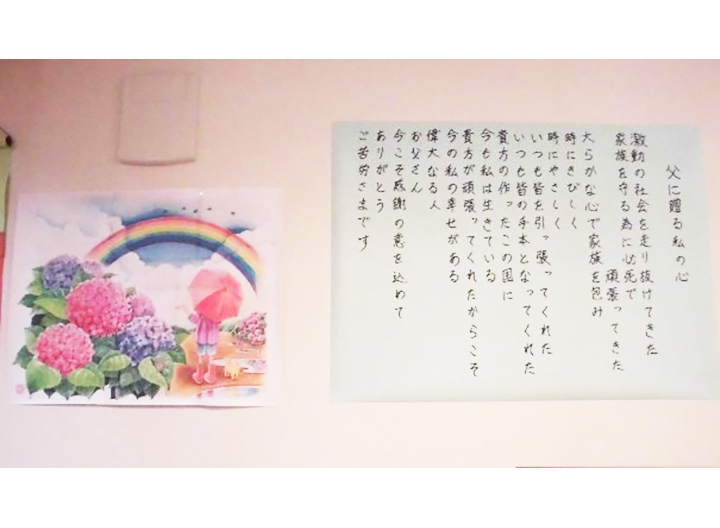 父に贈る私の心
激動の社会を走り抜けてきた
家族を守る為に必死で
頑張ってきた
大らかな心で家族を包み
時にきびしく
時にやさしく
いつも皆を引っ張ってくれた
いつも皆の手本となってくれた
貴方の作ったこの国に
今も私は生きている
貴方が頑張ってくれたからこそ
今の私の幸せがある
偉大なる人
お父さん
今こそ感謝の意を込めて
ありがとう
ご苦労さまです